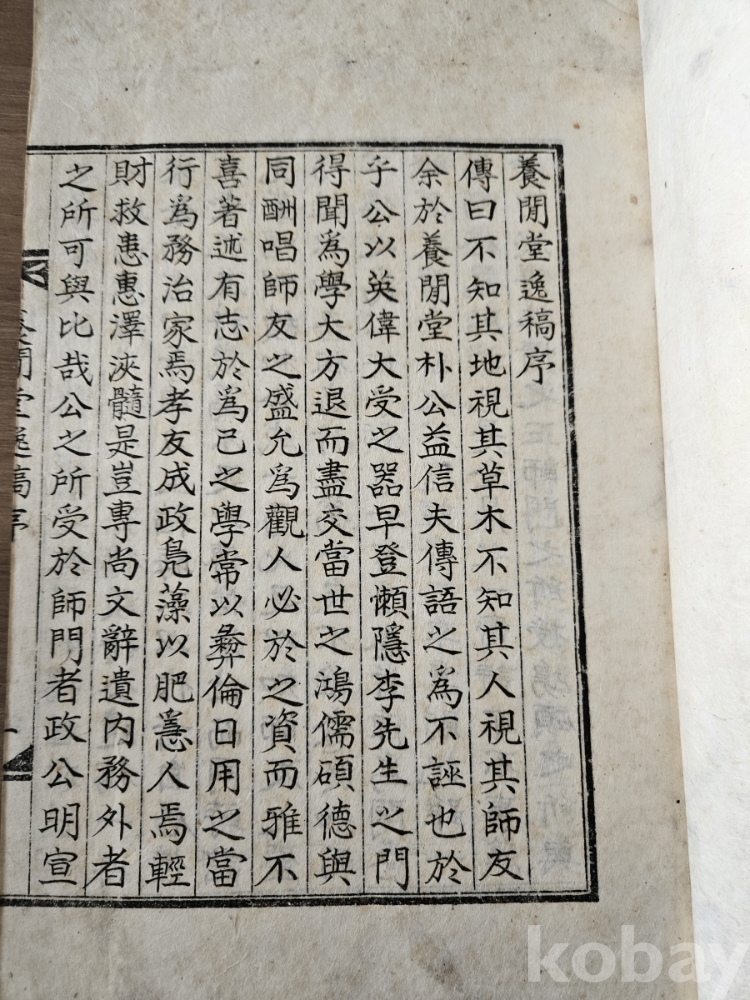 養閒堂逸稿序
傳曰不知其地視其草木不知其人視其師友
余於養閒堂朴公益信夫傳語之爲不誣也於
乎公以英偉大受之器早登懶隱李先生之門
得聞爲學大方退而盡交當世之鴻儒碩德與
同酬唱師友之盛允爲觀人必於之資而雅不
喜著述有志於爲己之學常以彝倫日用之當
行爲務治家焉孝友成政鳧藻以肥慝人焉輕
財救患惠澤浹髓是豈專尚文辭遺內務外者
之所可與比哉公之所受於師門者政公明宣
養閒堂逸稿序
一
kobay